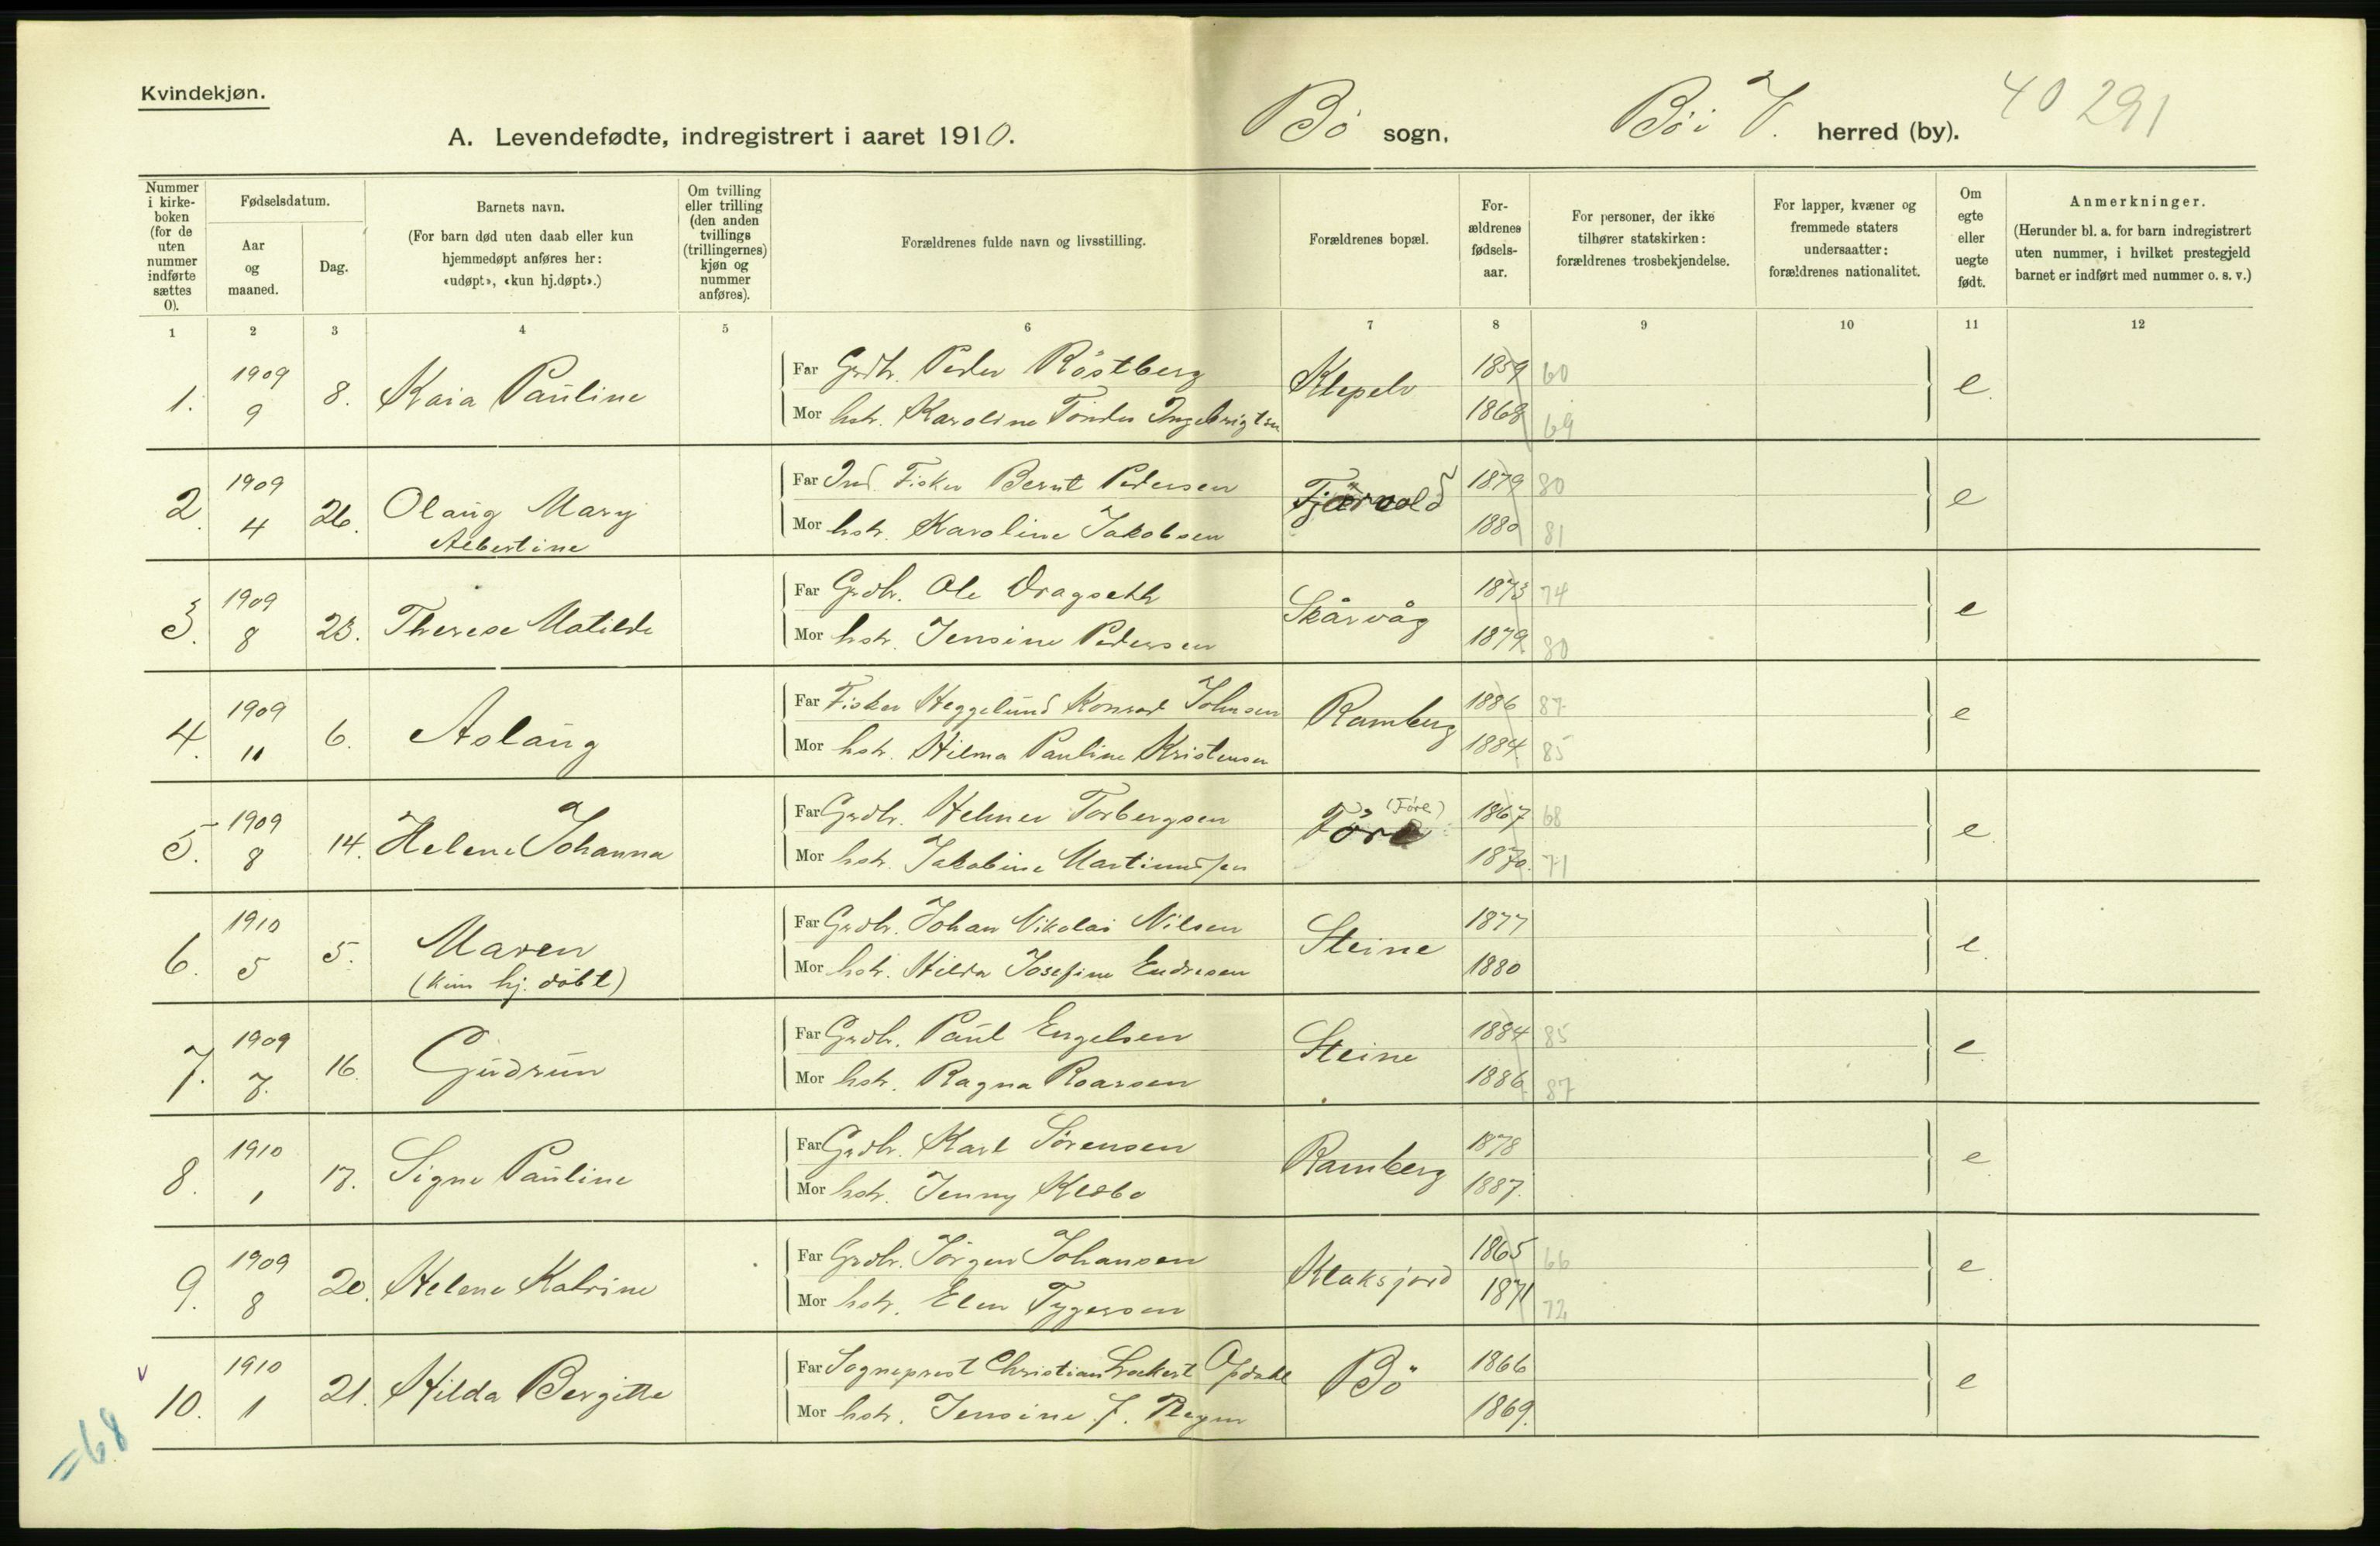 Kvindekjøn.
A. Levendefødte, indregistrert i aaret 1910.
Bö sogn, Bö i V. herred (by). 40 291
Nummer i kirkeboken (for de uten nummer indførte sættes 0).
Fødselsdatum.
Aar og maaned.
Dag.
Barnets navn.
(For barn død uten daab eller kun hjemmedøpt anføres her: «udøpt», «kun hj.døpt».)
Om tvilling eller trilling (den anden tvillings (trillingernes) kjøn og nummer anføres).
Forældrenes fulde navn og livsstilling.
Forældrenes bopæl.
Forældrenes fødselsaar.
For personer, der ikke tilhører statskirken: forældrenes trosbekjendelse.
For lapper, kvæner og fremmede staters undersaatter: forældrenes nationalitet.
Om egte eller uegte født.
Anmerkninger.
(Herunder bl. a. for barn indregistrert uten nummer, i hvilket prestegjeld barnet er indført med nummer o. s. v.)
1 2 3 4 5 6 7 8 9 10 11 12
1. 1909 9 8. Kaia Pauline
Far Grdbr. Peder Röstberg Klepelv 1859 60 e.
Mor hstr. Karoline Tönder Ingebrigtsen 1868 69
2. 1909 4 26. Olaug Mary Albertine
Far Ind. Fisker Bernt Pedersen Fjærvold 1879 80 e
Mor hstr. Karoline Jakobsen 1880 81
3. 1909 8 23. Therese Matilde
Far Grdbr. Ole Dragseth Skårvåg 1873 74 e
Mor hstr. Jensine Pedersen 1879 80
4. 1909 11 6. Aslaug
Far Fisker Heggelund Konrad Johnsen Ramberg 1886 87 e
Mor hstr. Hilma Pauline Kristensen 1884 85
5. 1909 8 14. Helene Johanna
Far Grdbr. Helmer Torbergsen Före (Före) 1867 68 e.
Mor hstr. Jakobine Martinussen 1870. 71
6. 1910 5 5. Maren (kun hj. döbt)
Far Grdbr. Johan Nikolai Nilsen Steine 1877 e.
Mor hstr. Hilda Josefine Endresen 1880
7. 1909 7. 16. Gudrun
Far Grdbr. Paul Engelsen Steine 1884 85 e.
Mor hstr. Ragna Roarsen 1886 87
8. 1910 1 17. Signe Pauline
Far Grdbr. Karl Sörensen Ramberg 1878 e
Mor hstr. Jenny Kledbo 1887.
9. 1909 8 20. Helene Katrine
Far Grdbr. Jörgen Johansen Klaksjord 1865 66 e.
Mor hstr. Elen Tygersen 1871 72
v 10. 1910 1 21. Hilda Bergitte
Far Sogneprest Christian Lockert Opdahl Bö 1866 e
Mor hstr. Jensine J. 1869.
=68